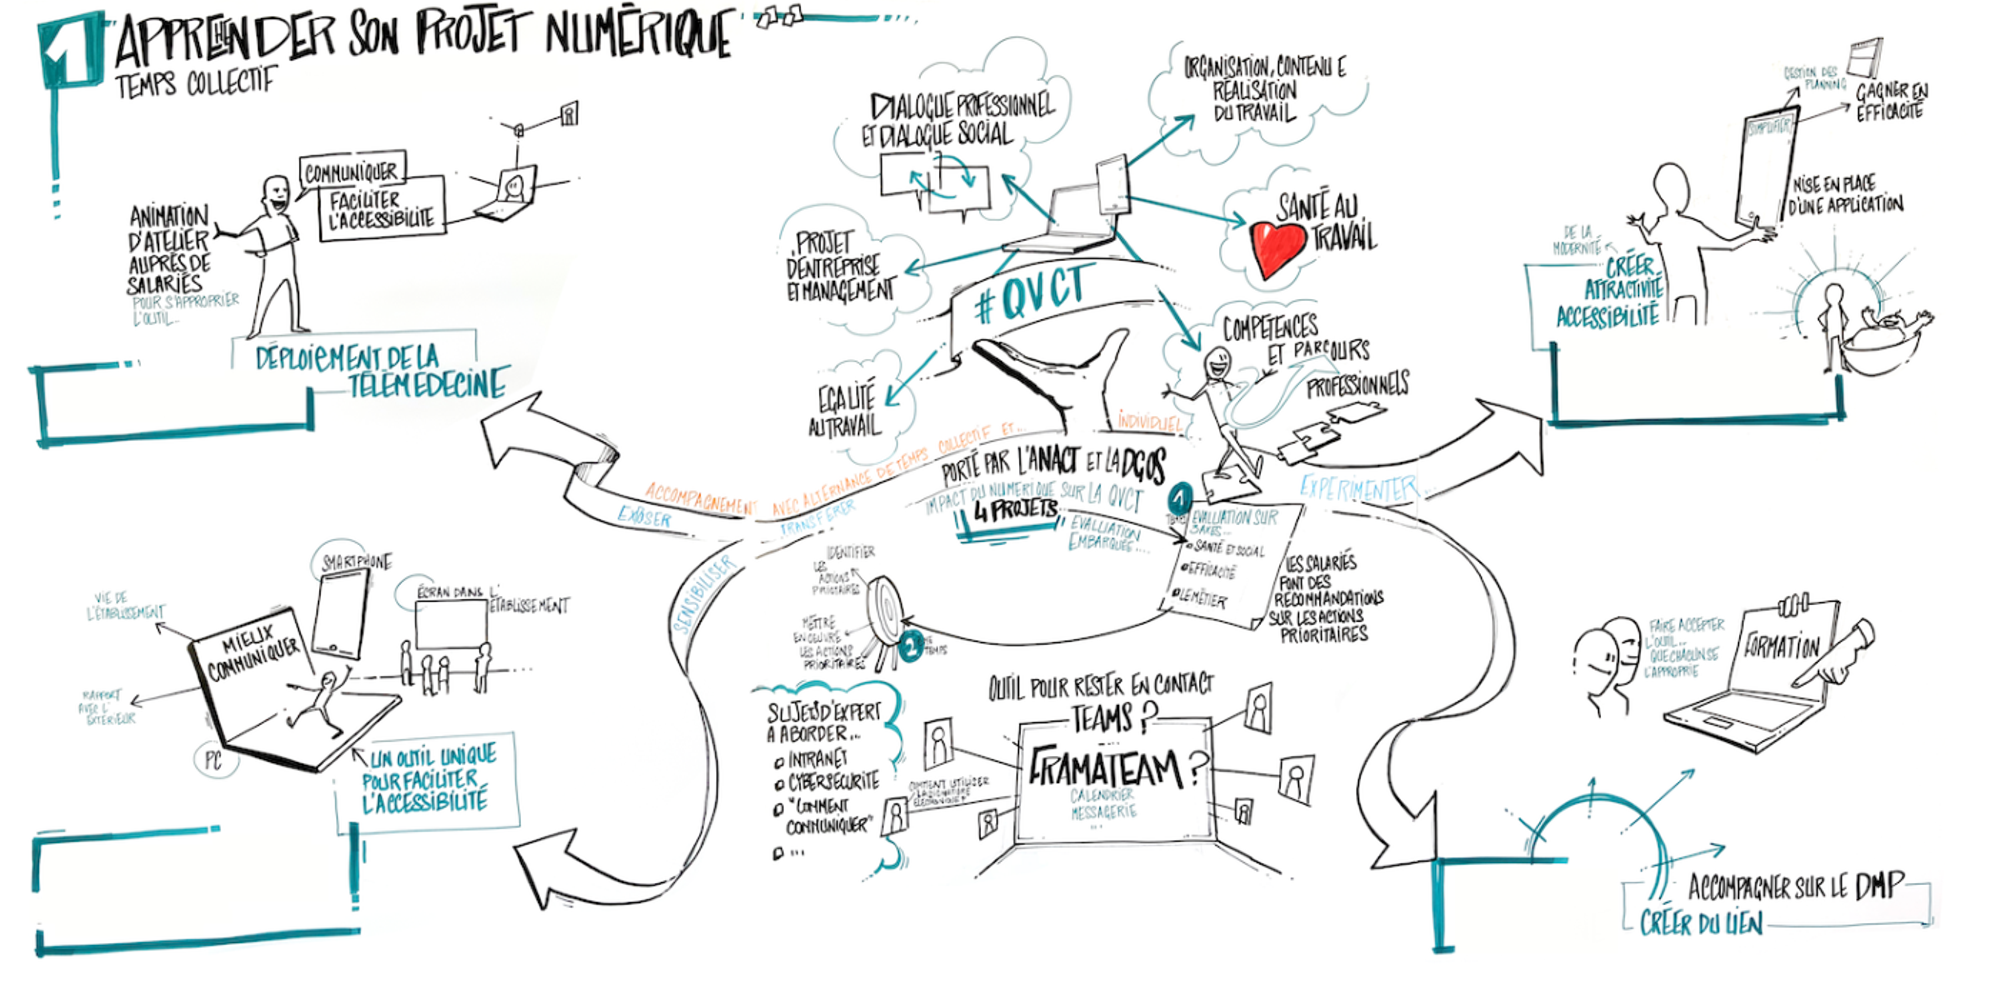 1
APPRÉHENDER SON PROJET NUMÉRIQUE
TEMPS COLLECTIF
ANIMATION
D'ATELIER
AUPRÈS DE
SALARIÉS
POUR S'APPROPRIER
L'OUTIL...
COMMUNIQUER
FACILITER
L'ACCESSIBILITÉ
DÉPLOIEMENT DE LA
TÉLÉMEDECINE
DIALOGUE PROFESSIONNEL
ET DIALOGUE SOCIAL
ORGANISATION, CONTENU E
RÉALISATION
DU TRAVAIL
SANTÉ AU
TRAVAIL
PROJET
D'ENTREPRISE
ET MANAGEMENT
#QVCT
EGALITÉ
AU TRAVAIL
COMPÉTENCES
ET PARCOURS
PROFESSIONNELS
GESTION DES
PLANNING
GAGNER EN
EFFICACITÉ
SIMPLIFIER
MISE EN PLACE
D'UNE APPLICATION
DE LA
MODERNITÉ
CRÉER
ATTRACTIVITÉ
ACCESSIBILITÉ
ACCOMPAGNEMENT AVEC ALTERNANCE DE TEMPS COLLECTIF ET...
INDIVIDUEL
EXPOSER
TRANSFÉRER
SENSIBILISER
EXPÉRIMENTER
PORTÉ PAR L'ANACT ET LA DGOS
IMPACT DU NUMÉRIQUE SUR LA QVCT
4 PROJETS
EVALUATION
EMBARQUÉE....
1
TEMPS
EVALUATION SUR
3 AXES...
SANTÉ ET SOCIAL
EFFICACITÉ
LE MÉTIER
LES SALARIÉS
FONT DES
RECOMMANDATIONS
SUR LES ACTIONS
PRIORITAIRES
IDENTIFIER
LES
ACTIONS
PRIORITAIRES
METTRE
EN OEUVRE
LES ACTIONS
PRIORITAIRES
2ME
TEMPS
SMARTPHONE
ÉCRAN DANS L'
ÉTABLISSEMENT
VIE DE
L'ÉTABLISSEMENT
MIEUX
COMMUNIQUER
RAPPORT
AVEC L'
EXTÉRIEUR
PC
UN OUTIL UNIQUE
POUR FACILITER
L'ACCESSIBILITÉ
SUJETS D'EXPERT
A ABORDER...
INTRANET
CYBERSECURITÉ
"COMMENT
COMMUNIQUER"
...
OUTIL POUR RESTER EN CONTACT
TEAMS ?
FRAMATEAM ?
CALENDRIER
MESSAGERIE
...
COMMENT UTILISER
LA SIGNATURE
ÉLECTRONIQUE ?
FAIRE ACCEPTER
L'OUTIL...
QUE CHACUN SE
L'APPROPRIE
FORMATION
ACCOMPAGNER SUR LE DMP
CRÉER DU LIEN